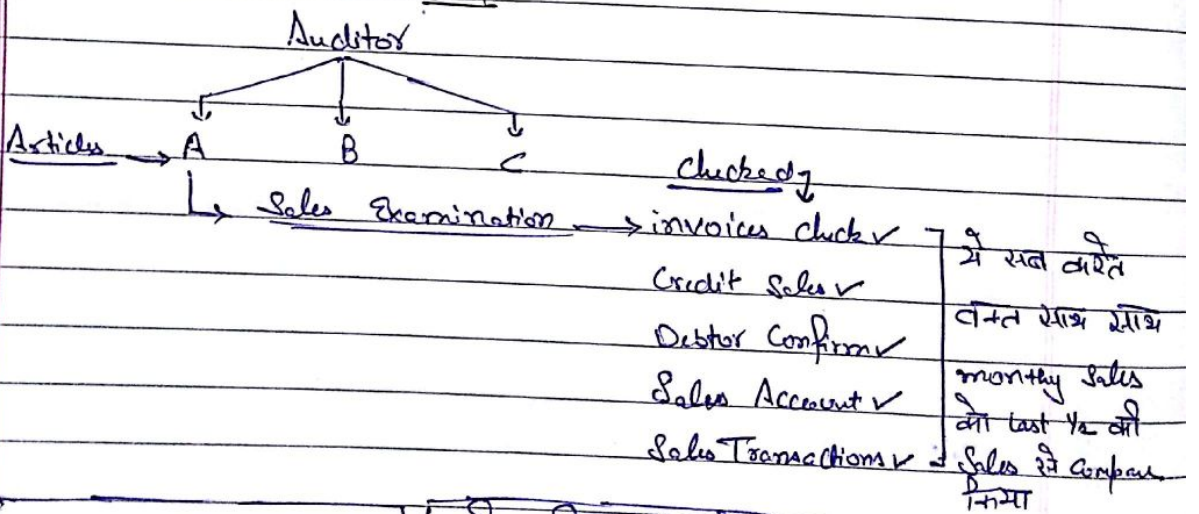 Auditor
Articles → A B C
Checked
Sales Examination → invoices check ✓
Credit Sales ✓
Debtor Confirm ✓
Sales Account ✓
Sales Transactions ✓
ये सब करते
वक्त साथ साथ
monthy Sales
को last yr की
Sales से Compare
किया